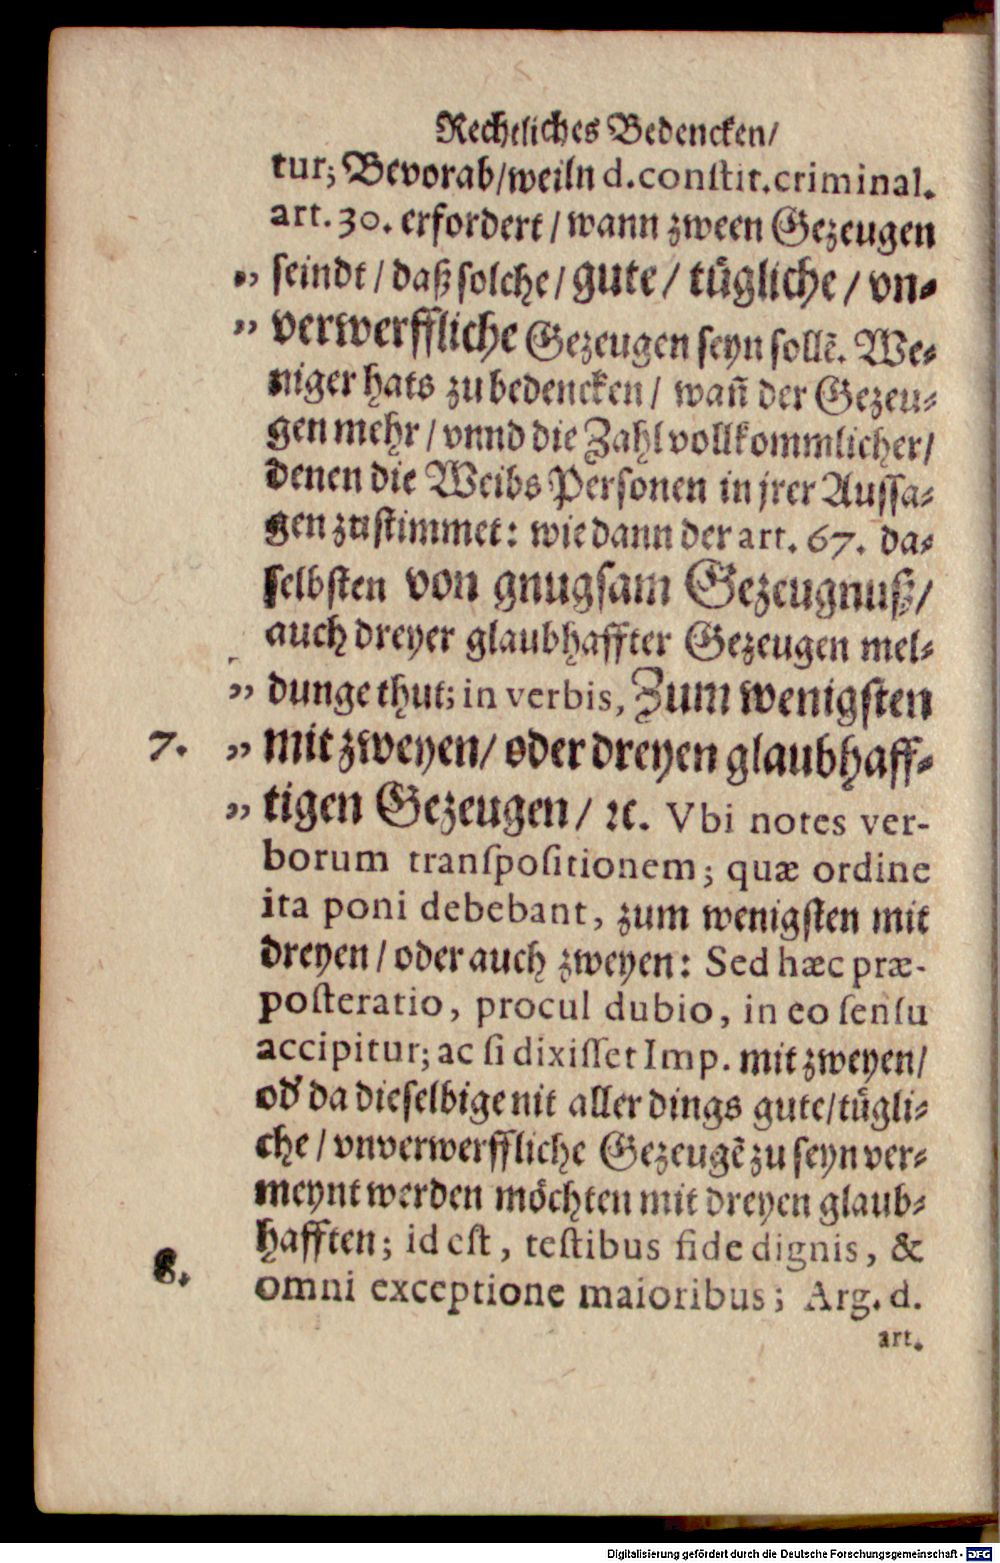 Rechtliches Bedencken/
tur; Bevorab/weiln d. conſtit. criminal.
art. 30. erfordert/wann zween Gezeugen
„ ſeindt/daß ſolche/gute/tügliche/vn-
„ verwerffliche Gezeugen ſeyn ſollẽ. We-
niger hats zu bedencken/ wañ der Gezeu-
gen mehr/vnnd die Zahl vollkommlicher/
denen die Weibs Perſonen in jrer Auſſa-
gen zuſtimmet: wie dann der art. 67. da-
ſelbſten von gnugſam Gezeugnuß/
auch dreyer glaubhaffter Gezeugen mel-
„ dunge thut; in verbis, Zum wenigſten
7. „ mit zweyen/oder dreyen glaubhaff-
„ tigen Gezeugen/ ꝛc. Vbi notes ver-
borum tranſpoſitionem; quæ ordine
ita poni debebant, zum wenigſten mit
dreyen/oder auch zweyen: Sed hæc præ-
poſteratio, procul dubio, in eo ſenſu
accipitur; ac ſi dixiſſet Imp. mit zweyen/
od' da dieſelbige nit aller dings gute/tügli-
che/vnverwerffliche Gezeugẽ zu ſeyn ver-
meynt werden möchten mit dreyen glaub-
hafften; id eſt, teſtibus fide dignis, &
8. omni exceptione maioribus; Arg. d.
art.
Digitalisierung gefördert durch die Deutsche Forschungsgemeinschaft - DFG